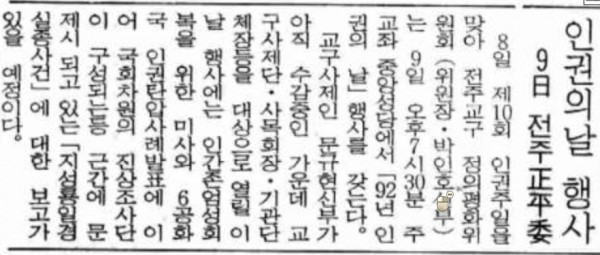 인권의날 행사
9日 전주正平委
8일 제10회 인권주일을
맞아 전주교구 정의평화위
원회(위원장·박인호신부)
는 9일 오후7시30분 주
교좌 중앙성당에서 「92년 인
권의 날」행사를 갖는다.
교구사제인 문규현신부가
아직 수감중인 가운데 교
구사제단·사목회장·기관단
체장등을 대상으로 열릴 이
날 행사에는 인간존엄성회
복을 위한 미사와 6공화
국 인권탄압사례발표에 이
어 국회차원의 진상조사단
이 구성되는등 근간에 문
제시 되고 있는 「지성룡일경
실종사건」에 대한 보고가
있을 예정이다.